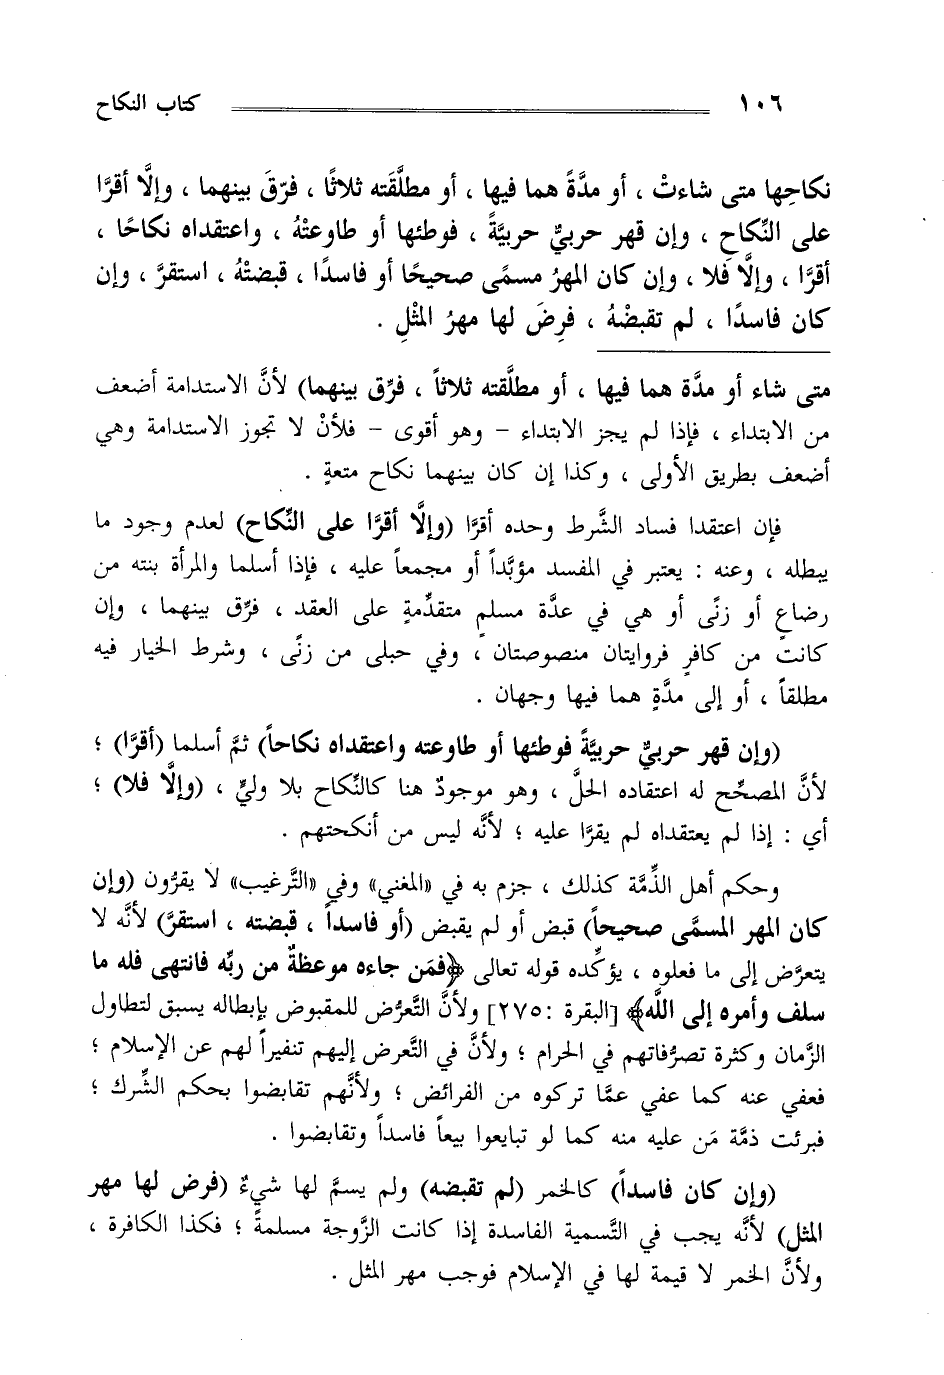 ١٠٦ كتاب النكاح
نكاحِها متى شاءتْ ، أو مدَّةً هما فيها ، أو مطلَّقَته ثلاثًا ، فرّقَ بينهما ، وإلَّا أقرَّا
على النِّكاحِ ، وإن قهر حربيٌّ حربيَّةً ، فوطئها أو طاوعتْهُ ، واعتقداه نكاحًا ،
أقرَّا ، وإلَّا فلا ، وإن كان المهرُ مسمًى صحيحًا أو فاسدًا ، قبضتْهُ ، استقرَّ ، وإن
كان فاسدًا ، لم تقبضْهُ ، فرِضَ لها مهرُ المثْلِ .
متى شاء أو مدَّة هما فيها ، أو مطلَّقته ثلاثاً ، فرِّق بينهما) لأنَّ الاستدامة أضعف
من الابتداء ، فإذا لم يجز الابتداء – وهو أقوى – فلأنْ لا تجوز الاستدامة وهي
أضعف بطريق الأولى ، وكذا إن كان بينهما نكاح متعةٍ .
فإن اعتقدا فساد الشَّرط وحده أقرَّا (وإلَّا أقرَّا على النِّكاح) لعدم وجود ما
يبطله ، وعنه : يعتبر في المفسد مؤبَّداً أو مجمعاً عليه ، فإذا أسلما والمرأة بنته من
رضاعٍ أو زنًى أو هي في عدَّة مسلمٍ متقدِّمةٍ على العقد ، فرِّق بينهما ، وإن
كانت من كافرٍ فروايتان منصوصتان ، وفي حبلى من زنًى ، وشرط الخيار فيه
مطلقاً ، أو إلى مدَّةٍ هما فيها وجهان .
(وإن قهر حربيٌّ حربيَّةً فوطئها أو طاوعته واعتقداه نكاحاً) ثمَّ أسلما (أقرَّا) ؛
لأنَّ المصحِّح له اعتقاده الحلَّ ، وهو موجودٌ هنا كالنِّكاح بلا وليٍّ ، (وإلَّا فلا) ؛
أي : إذا لم يعتقداه لم يقرَّا عليه ؛ لأنَّه ليس من أنكحتهم .
وحكم أهل الذِّمَّة كذلك ، جزم به في «المغني» وفي «التَّرغيب» لا يقرُّون (وإن
كان المهر المسمَّى صحيحاً) قبض أو لم يقبض (أو فاسداً ، قبضته ، استقرَّ) لأنَّه لا
يتعرَّض إلى ما فعلوه ، يؤكِّده قوله تعالى ﴿فمَن جاءه موعظةٌ من ربِّه فانتهى فله ما
سلف وأمره إلى اللَّه﴾ [البقرة :٢٧٥] ولأنَّ التَّعرُّض للمقبوض بإبطاله يسبق لتطاول
الزَّمان وكثرة تصرُّفاتهم في الحرام ؛ ولأنَّ في التَّعرض إليهم تنفيراً لهم عن الإسلام ؛
فعفي عنه كما عفي عمَّا تركوه من الفرائض ؛ ولأنَّهم تقابضوا بحكم الشِّرك ؛
فبرئت ذمَّة مَن عليه منه كما لو تبايعوا بيعاً فاسداً وتقابضوا .
(وإن كان فاسداً) كالخمر (لم تقبضه) ولم يسمَّ لها شيءٌ (فرض لها مهر
المثل) لأنَّه يجب في التَّسمية الفاسدة إذا كانت الزَّوجة مسلمةً ؛ فكذا الكافرة ،
ولأنَّ الخمر لا قيمة لها في الإسلام فوجب مهر المثل .